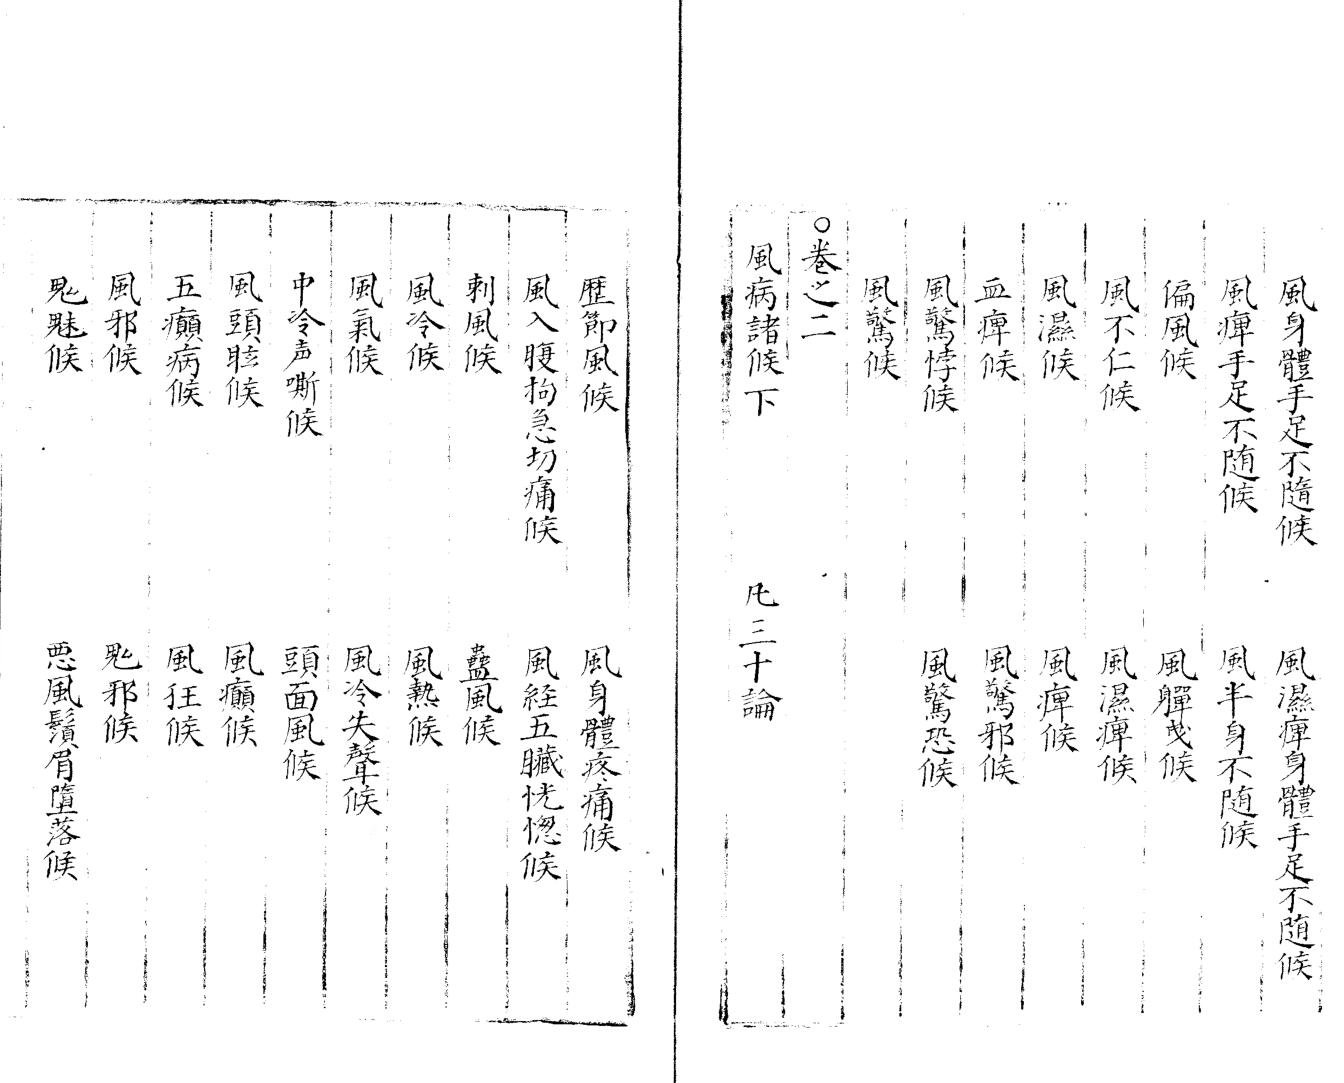 風身體手足不隨候　風濕痺身體手足不随候
風痺手足不随候　風半身不随候
偏風候　風軃曵候
風不仁候　風濕痺候
風濕候　風痺候
血痺候　風驚邪候
風驚悸候　風驚恐候
風驚候
○巻之二
風病諸候下　凡三十論
歴節風候　風身體疼痛候
風入腹拘急切痛候　風経五臓恍惚候
刺風候　蠱風候
風冷候　風熱候
風氣候　風冷失聲候
中冷声嘶候　頭面風候
風頭眩候　風癲候
五癲病候　風狂候
風邪候　鬼邪候
鬼魅候　悪風鬚眉墮落候